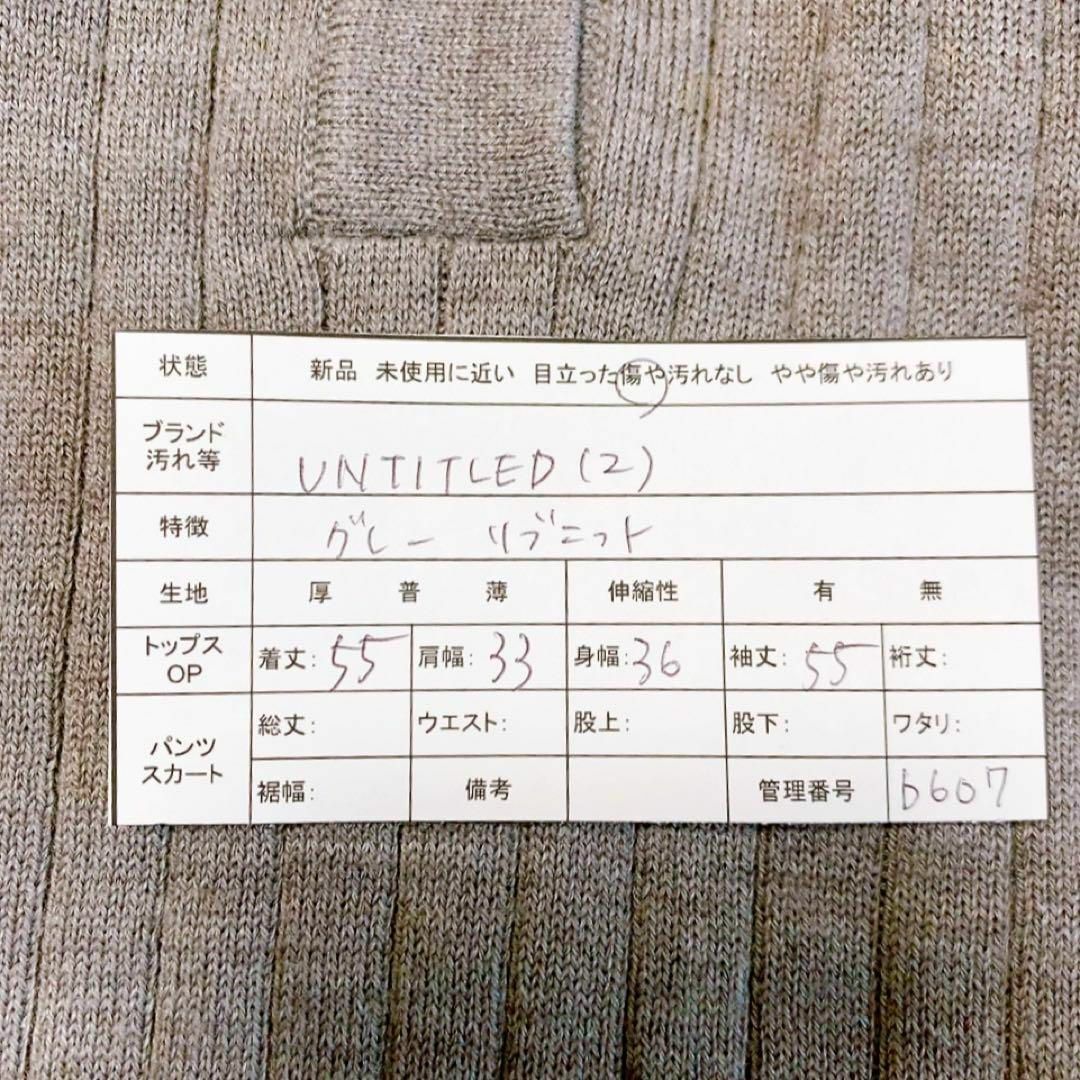 状態 新品 未使用に近い 目立った傷や汚れなし やや傷や汚れあり
ブランド
汚れ等 UNTITLED (2)
特徴 グレー リブニット
生地 厚 普 薄 伸縮性 有 無
トップス
OP 着丈: 55 肩幅: 33 身幅: 36 袖丈: 55 裄丈:
パンツ
スカート 総丈: ウエスト: 股上: 股下: ワタリ:
裾幅: 備考 管理番号 b607